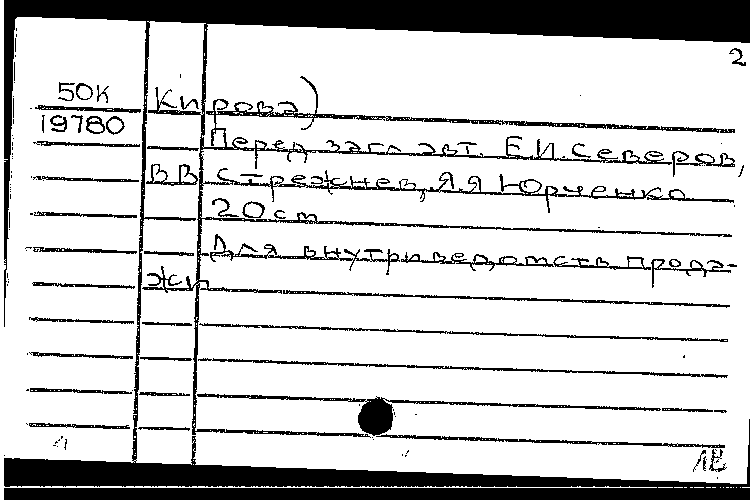 2
50К Кирова)
19780 Перед загл авт. Е.И.Северов,
В В Стрежнев, Я.Я Юрченко
20 см
Для внутриведомств прода-
жи